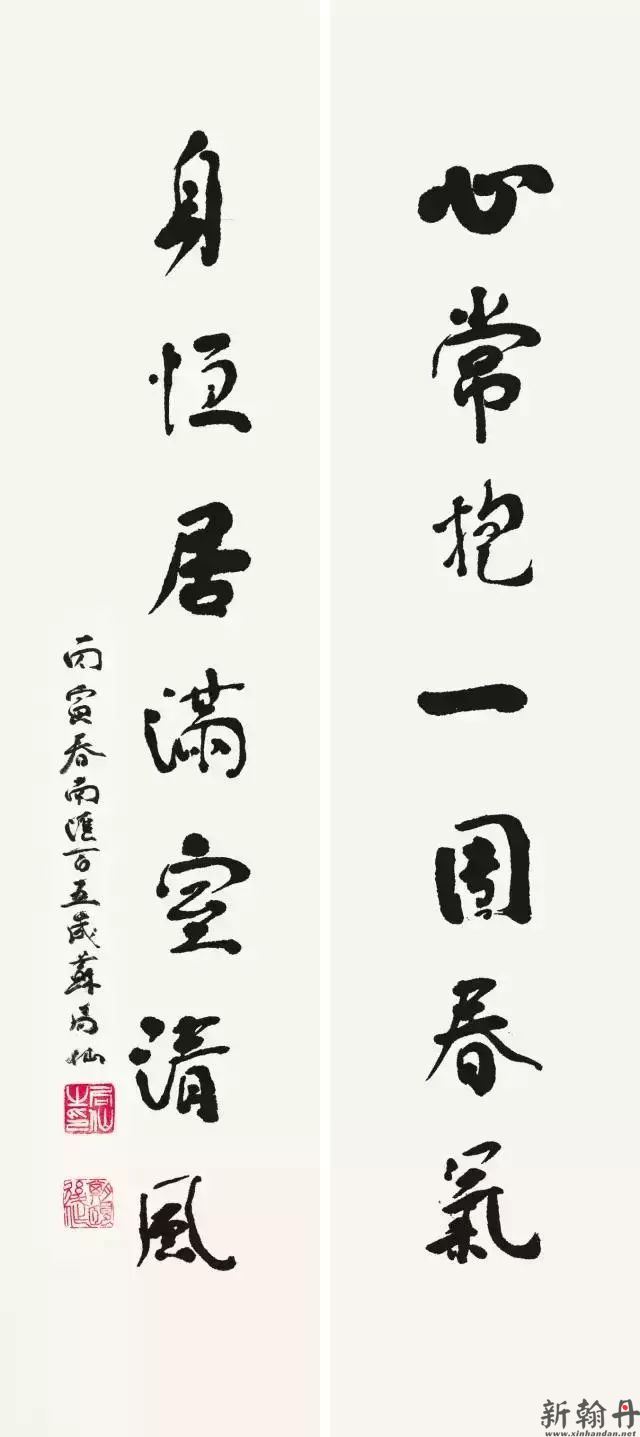 心常抱一團春氣
身恒居滿室清風
丙寅春南匯百五歲蘇局仙
新翰丹
www.xinhandan.net